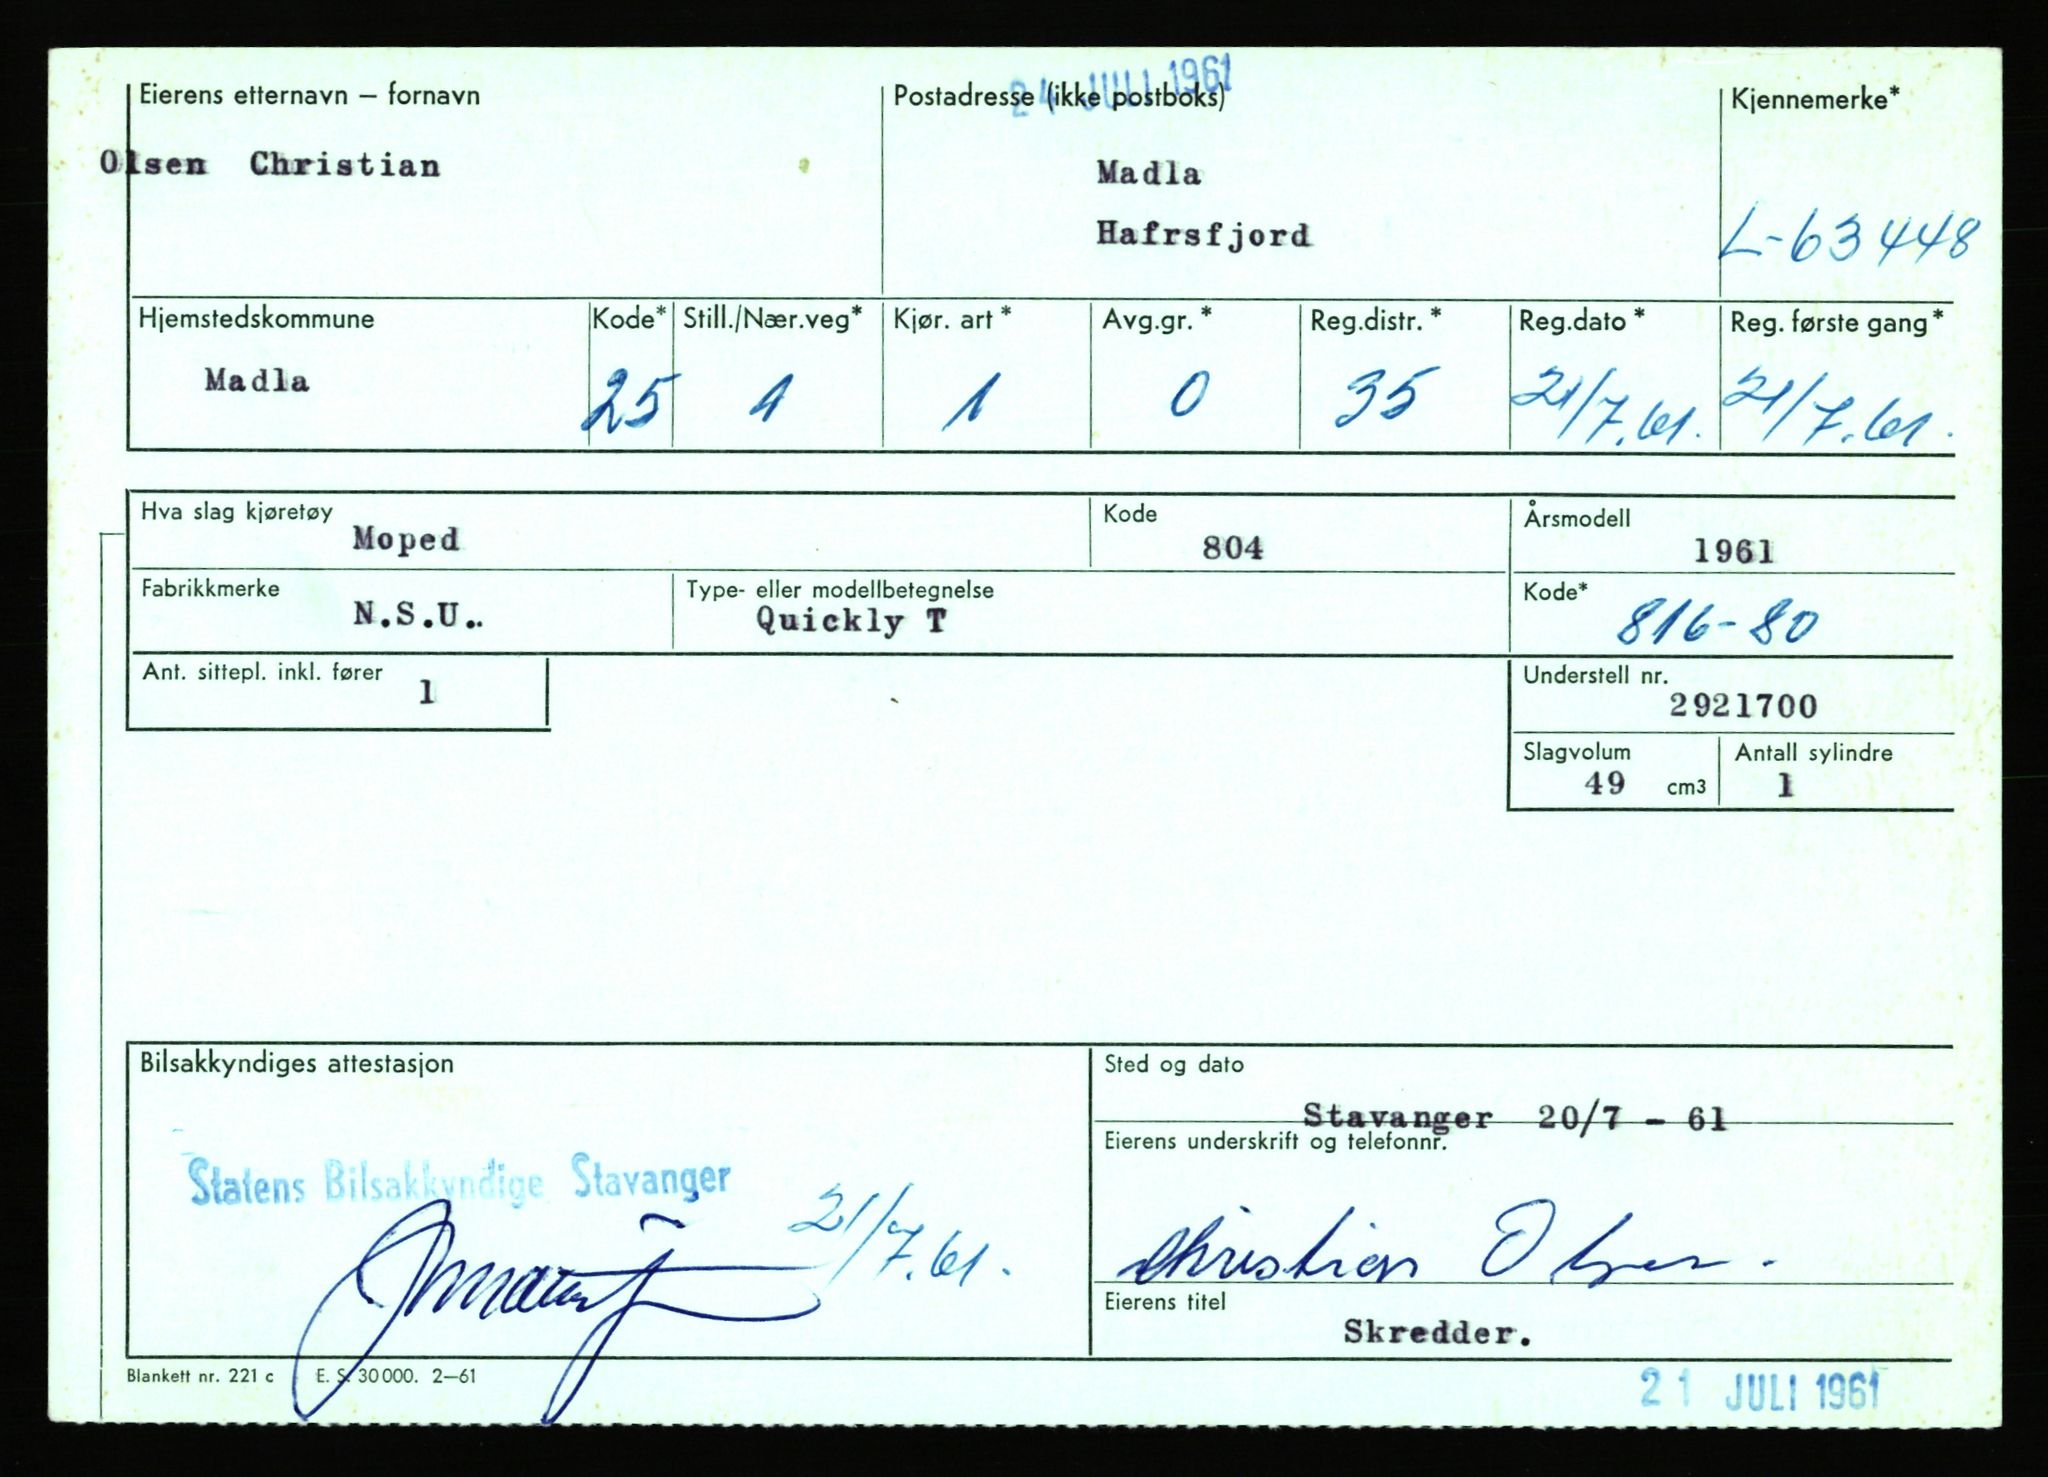 24 JULI 1961
Eierens etternavn – fornavn
Olsen Christian
Postadresse (ikke postboks)
Madla
Hafrsfjord
Kjennemerke*
L-63448
Hjemstedskommune
Madla
Kode*
25
Still./Nær.veg*
1
Kjør. art *
1
Avg.gr. *
0
Reg.distr. *
35
Reg.dato *
21/7.61.
Reg. første gang *
21/7.61.
Hva slag kjøretøy
Moped
Kode
804
Årsmodell
1961
Fabrikkmerke
N.S.U..
Type- eller modellbetegnelse
Quickly T
Kode*
816-80
Ant. sittepl. inkl. fører
1
Understell nr.
2921700
Slagvolum
49 cm3
Antall sylindre
1
Bilsakkyndiges attestasjon
Statens Bilsakkyndige Stavanger
21/7.61.
Sted og dato
Stavanger 20/7 - 61
Eierens underskrift og telefonnr.
Christian Olsen.
Eierens titel
Skredder.
Blankett nr. 221 c E. S. 30000. 2–61
21 JULI 1961